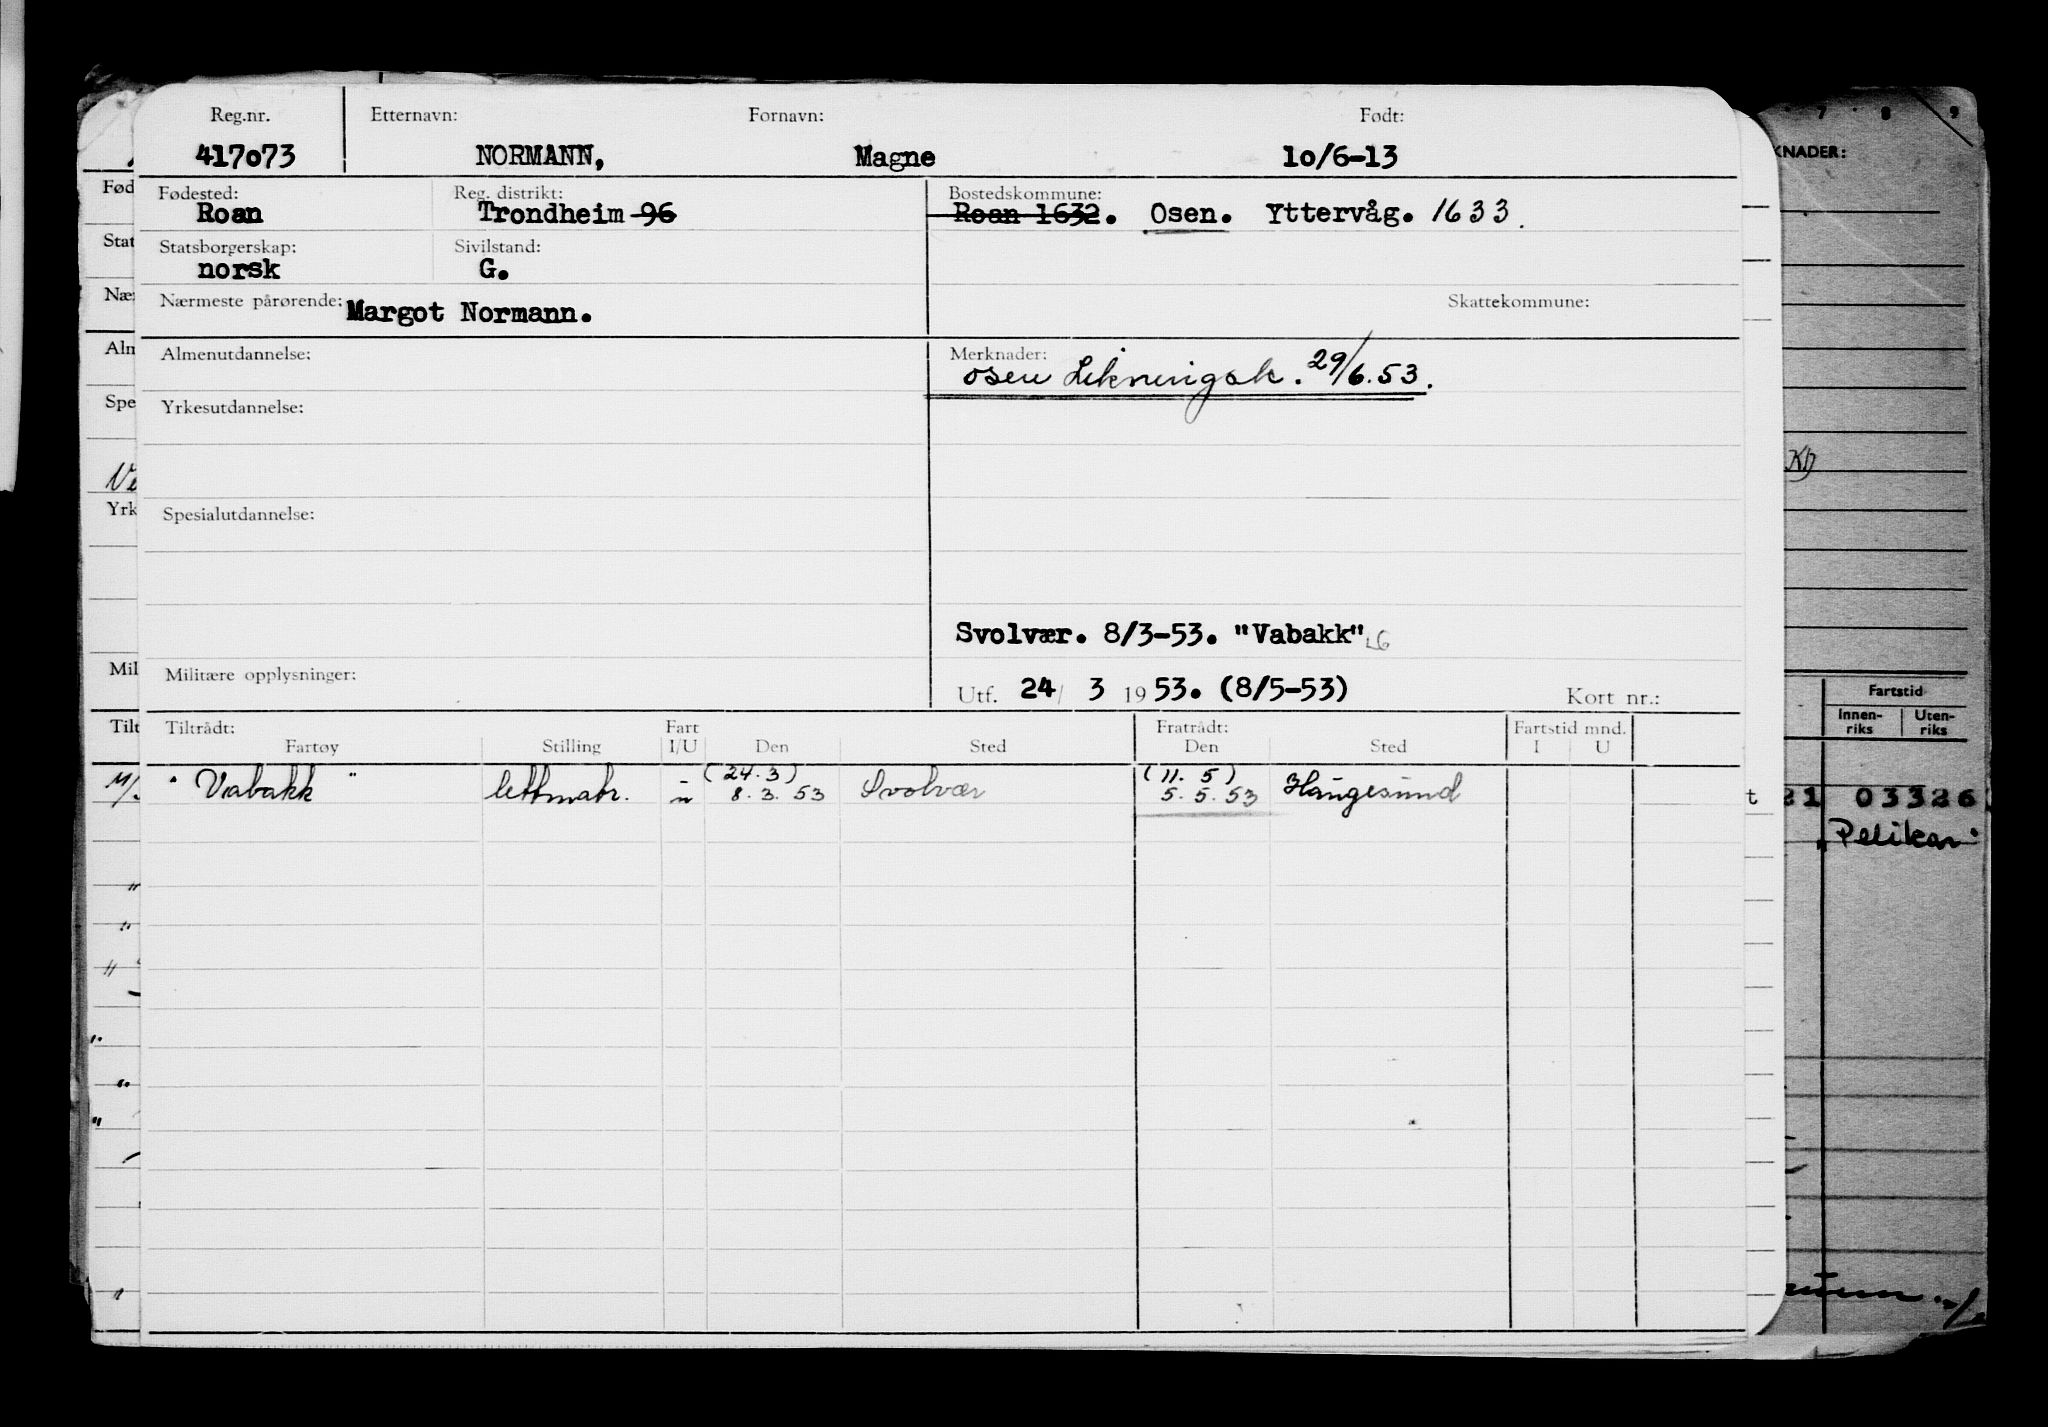 Reg.nr. Etternavn: Fornavn: Født:
417o73 NORMANN, Magne 1o/6-13
Fødested: Reg. distrikt: Bostedskommune:
Roan Trondheim 96 Roan 1632. Osen. Yttervåg. 1633.
Statsborgerskap: Sivilstand:
norsk G.
Nærmeste pårørende: Margot Normann. Skattekommune:
Almenutdannelse: Merknader:
Osen Likningsk. 29/6.53.
Yrkesutdannelse:
Spesialutdannelse:
Svolvær. 8/3-53. "Vabakk"
Militære opplysninger:
Utf. 24/ 3 1953. (8/5-53) Kort nr.:
Tiltrådt: Fart Fratrådt: Fartstid mnd.
Fartøy Stilling I/U Den Sted Den Sted I U
(24.3) (11. 5)
"Vabakk" lettmatr. u 8.3.53 Svolvær 5.5.53 Haugesund
Fød
Stat
Nær
Aln
Spe
Ve
Yrk
Mil
Tilt
M/
7 8 9
KNADER:
Fartstid
Innen-riks Uten-riks
t 21 03326
"Pelikan"